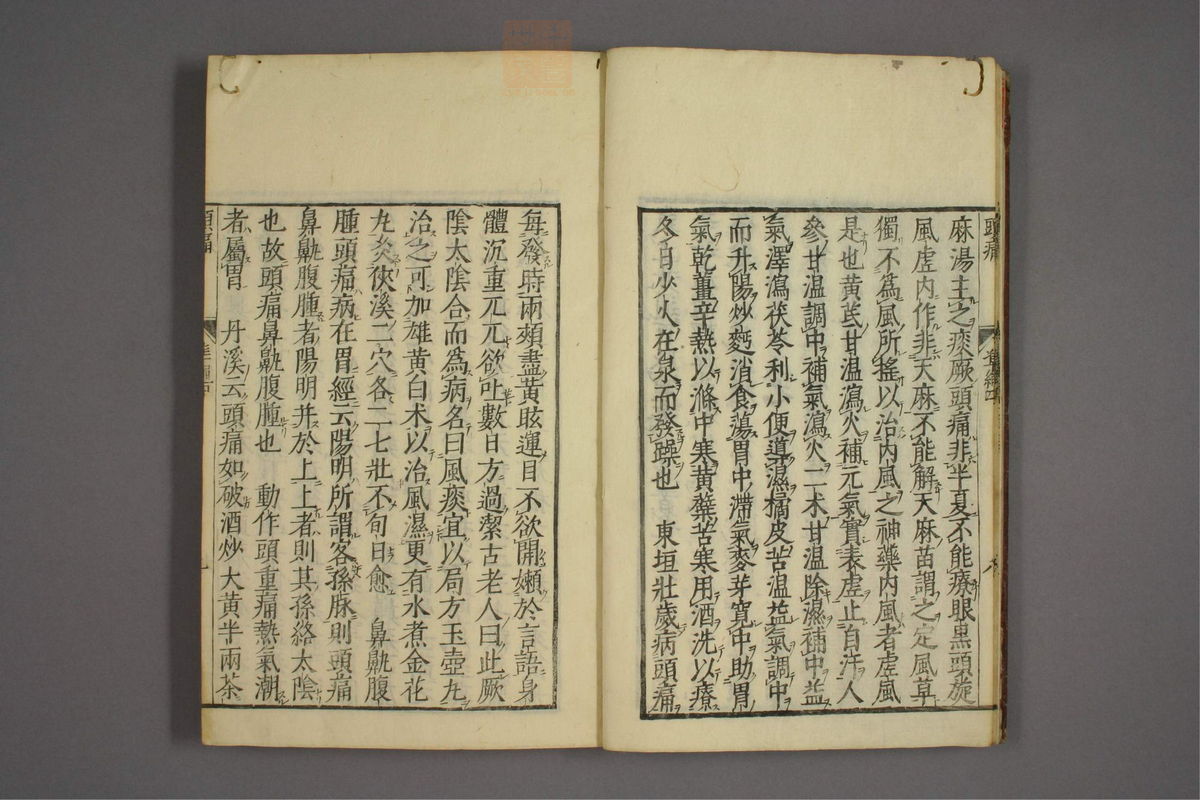 頭痛
麻湯主之痰厥頭痛非半夏不能療眼黒頭旋
風虚内作非天麻不能解天麻苗謂之定風草
獨不爲風所搖以治内風之神藥内風者虚風
是也黄芪甘温瀉火補元氣實表虚止自汗人
參甘温調中補氣瀉火二术甘温除濕補中益
氣澤瀉茯苓利小便導濕橘皮苦温益氣調中
而升陽炒麪消食蕩胃中滯氣麥芽寬中助胃
氣乾薑辛熱以滌中寒黄蘗苦寒用酒洗以療
冬日少火在泉而發躁也 東垣壯歲病頭痛
每發時兩頰盡黄眩運目不欲開嬾於言語身
體沉重兀兀欲吐數日方過潔古老人曰此厥
陰太陰合而爲病名曰風痰宜以局方玉壺丸
治之可加雄黄白术以治風濕更有水煮金花
丸灸俠溪二穴各二七壯不旬日愈 鼻鼽腹
腫頭痛病在胃經云陽明所謂客孫脉則頭痛
鼻鼽腹腫者陽明并於上上者則其孫絡太陰
也故頭痛鼻鼽腹腫也 動作頭重痛熱氣潮
者屬胃 丹溪云頭痛如破酒炒大黄半兩茶
頭痛